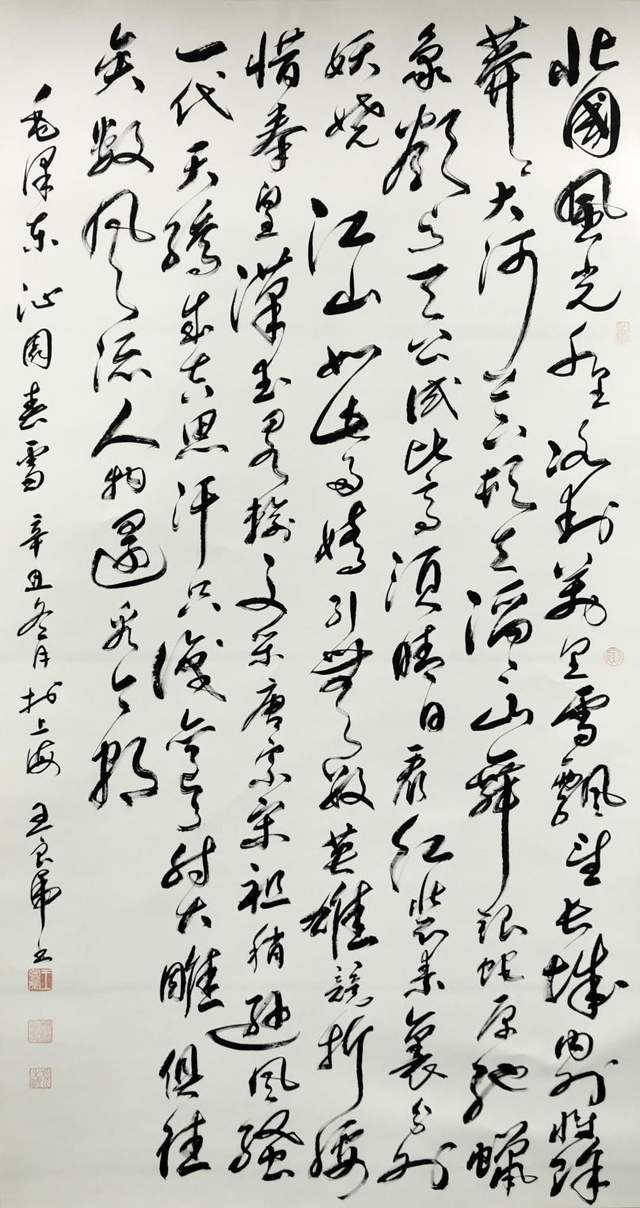 北國風光千里冰封萬里雪飄望长城内外惟馀
莽〻大河上下頓失滔〻山舞银蛇原驰蠟
象欲与天公试比高须晴日看红装素裹分外
妖娆江山如此多娇引無数英雄競折腰
惜秦皇漢武略输文采唐宗宋祖稍逊风骚
一代天骄成吉思汗只识弯弓射大雕俱往
矣数风流人物還看今朝
毛泽东沁园春雪辛丑冬月於上海王良虎书